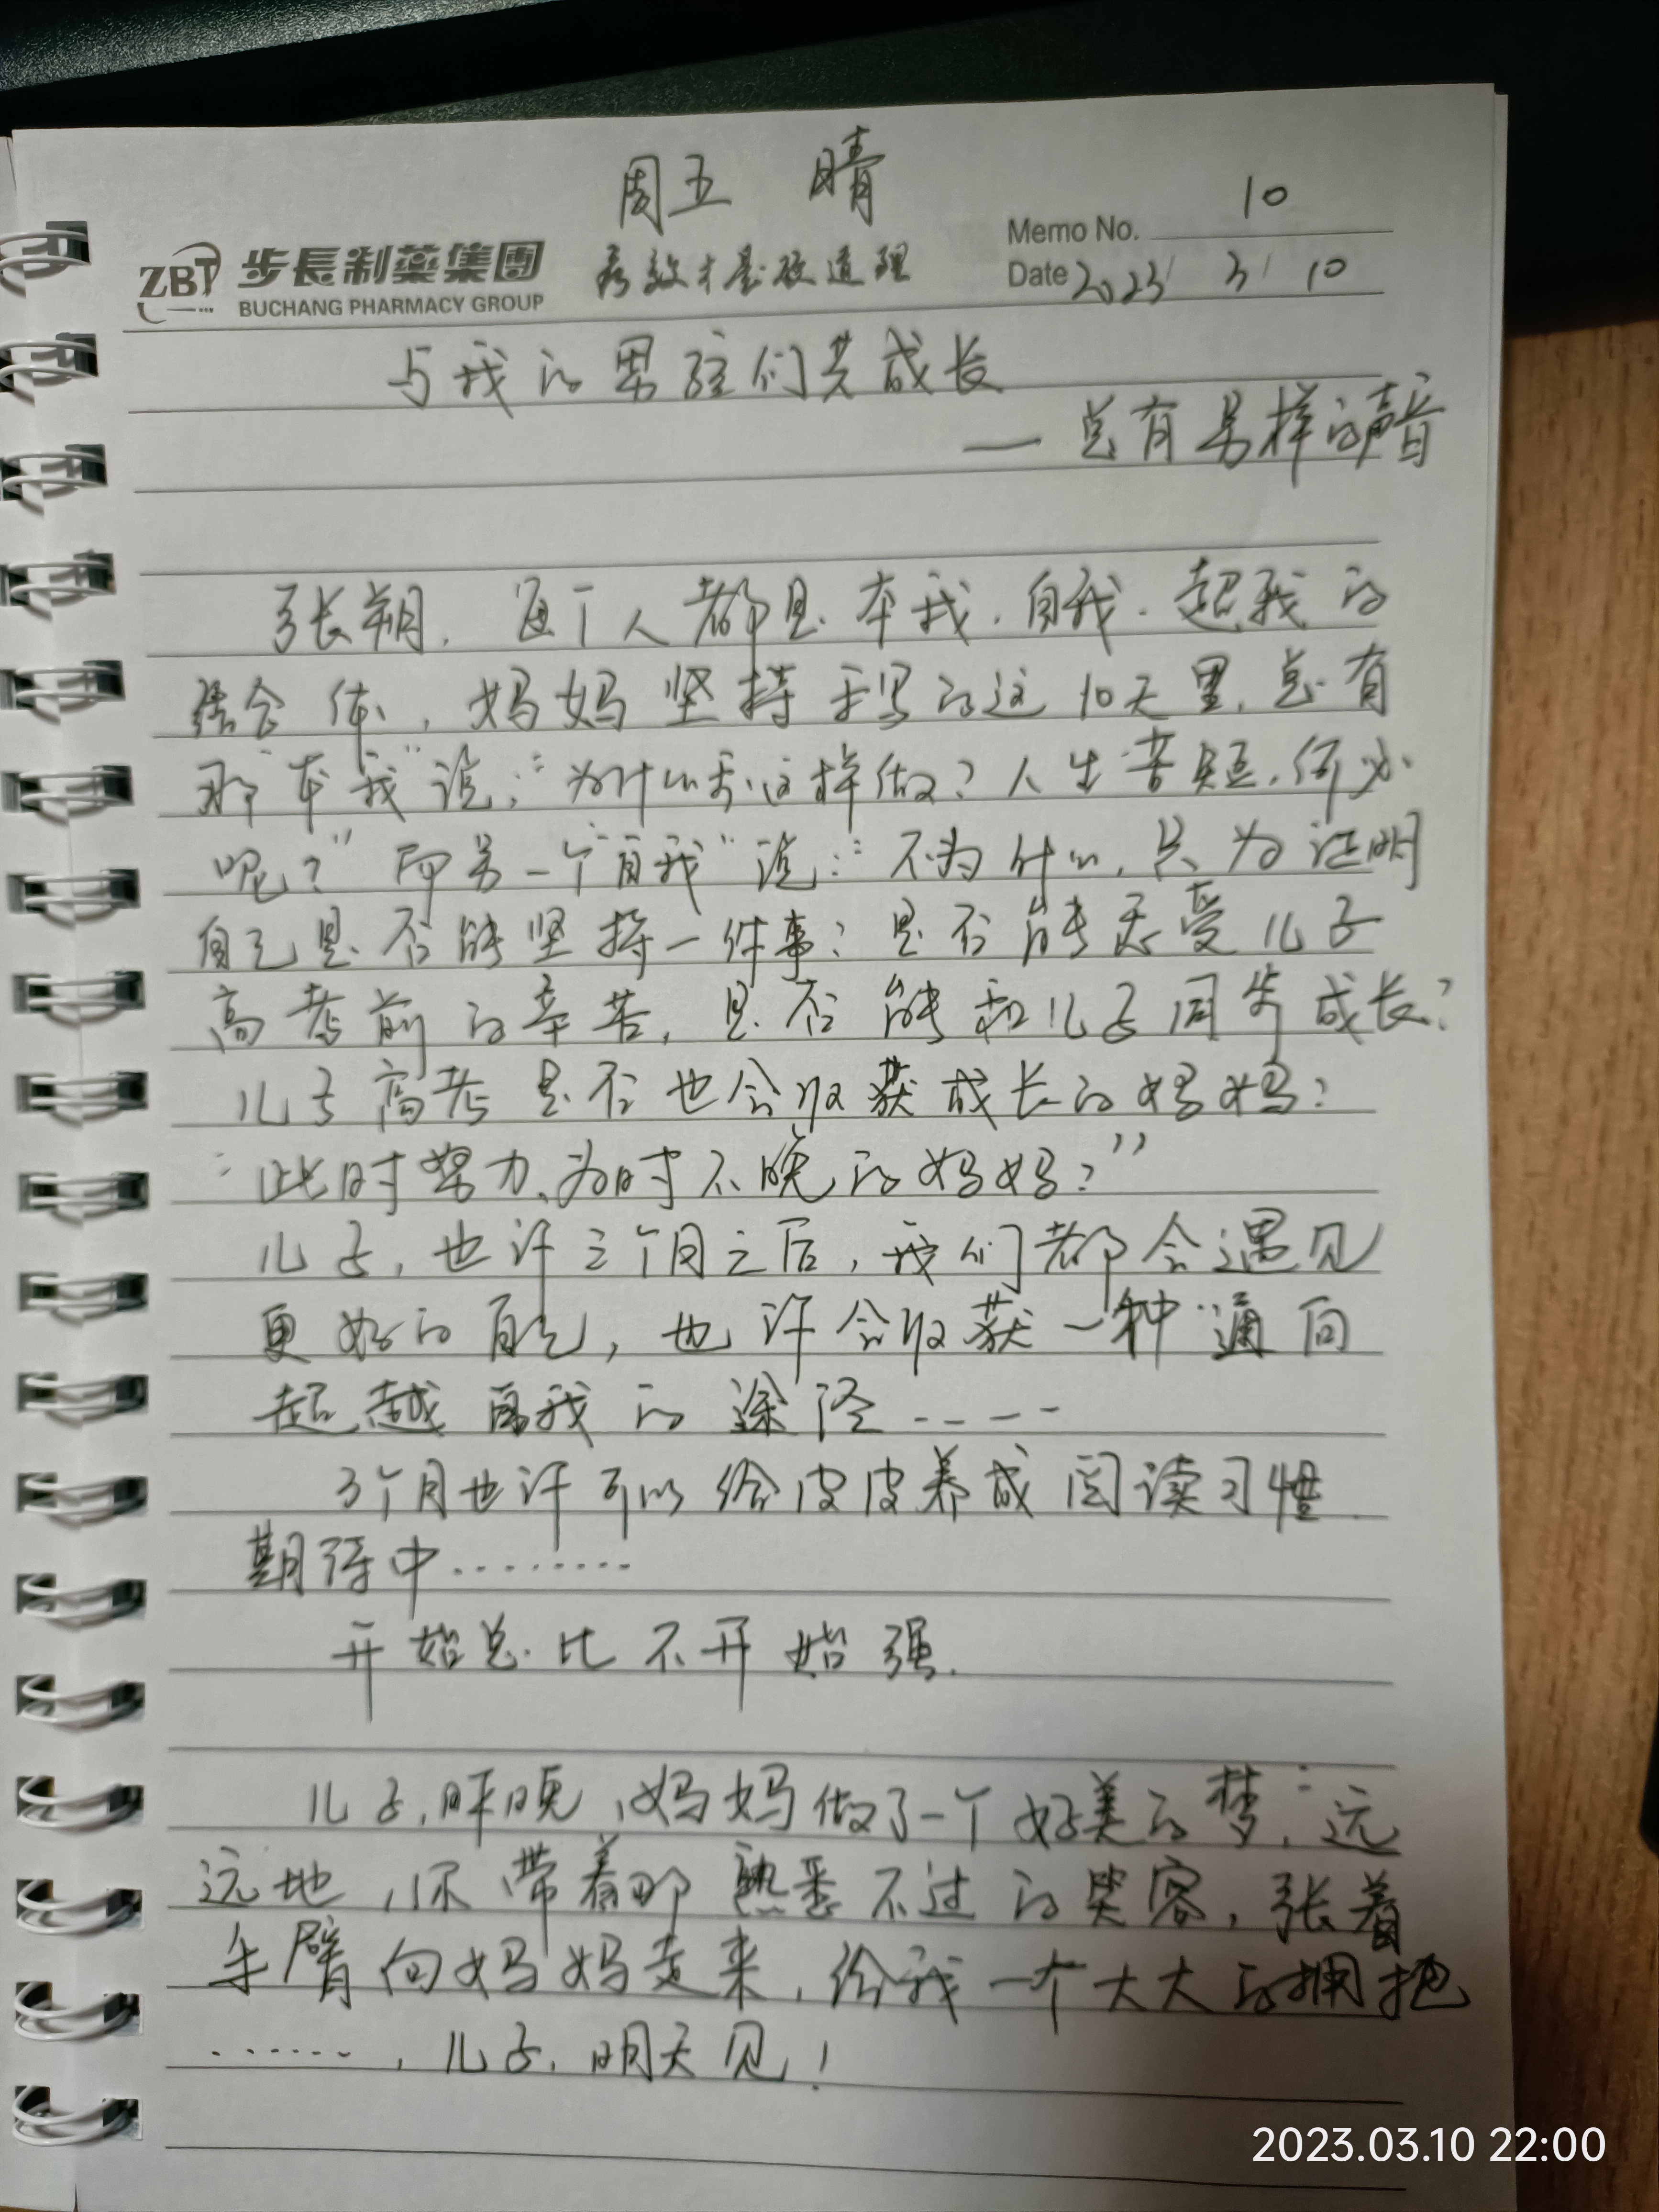 周五 晴
10
Memo No.
ZBT 步長制藥集團 疗效才是硬道理
BUCHANG PHARMACY GROUP
Date 2023/ 3/ 10
与我的男孩们共成长
— 总有另样的声音
张朔，每个人都是本我.自我.超我的
结合体，妈妈坚持手写的这10天里，总有
那“本我”说：“为什么要这样做？人生苦短，何必
呢？”而另一个“自我”说：“不为什么，只为证明
自己是否能坚持一件事？是否能忍受儿子
高考前的辛苦，是否能和儿子同步成长？
儿子高考是否也会收获成长的妈妈？
“此时努力、为时不晚的妈妈？”
儿子，也许三个月之后，我们都会遇见
更好的自己，也许会收获一种通向
超越自我的途径----
3个月也许可以给皮皮养成阅读习惯
期待中………
开始总比不开始强.
儿子，昨晚，妈妈做了一个好美的梦：远
远地，你带着那熟悉不过的笑容，张着
手臂向妈妈走来，给我一个大大的拥抱
……，儿子，明天见！
2023.03.10 22:00